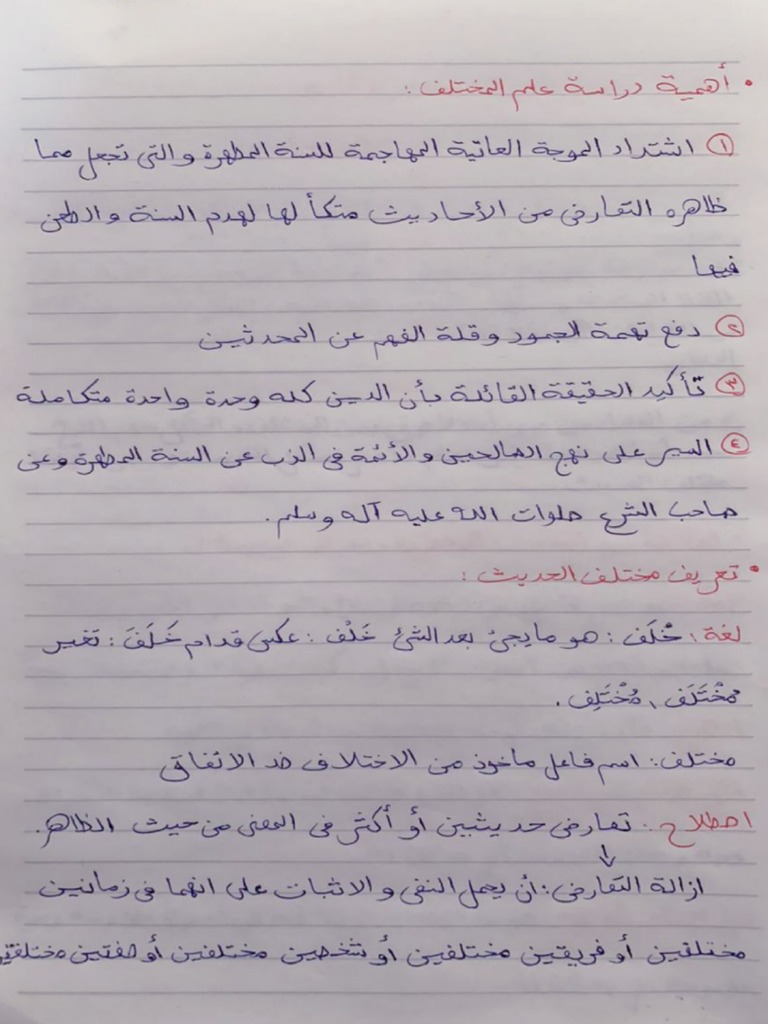 • أهمية دراسة علم المختلف :
① اشتداد الموجة العاتية المهاجمة للسنة المطهرة والتى تجعل مما
ظاهره التعارض من الأحاديث متكأ لها لهدم السنة والطعن
فيها
② دفع تهمة الجمود وقلة الفهم عن المحدثين
③ تأكيد الحقيقة القائلة بأن الدين كله وحدة واحدة متكاملة
④ السير على نهج الصالحين والأئمة فى الذب عن السنة المطهرة وعن
صاحب الشرع صلوات الله عليه آله وسلم.
• تعريف مختلف الحديث :
لغة: خَلَف : هو ما يجئ بعد الشئ خَلْف : عكس قدام خَلَفَ : تغير
مُخْتَلَف ، مُخْتَلِف .
مختلف: اسم فاعل ماخوذ من الاختلاف ضد الاتفاق
اصطلاح : تعارض حديثين أو أكثر فى المعنى من حيث الظاهر.
↓
ازالة التعارض : أن يحمل النفى والاثبات على انهما فى زمانين
مختلفين أو فريقين مختلفين أو شخصين مختلفين أو صفتين مختلفتين